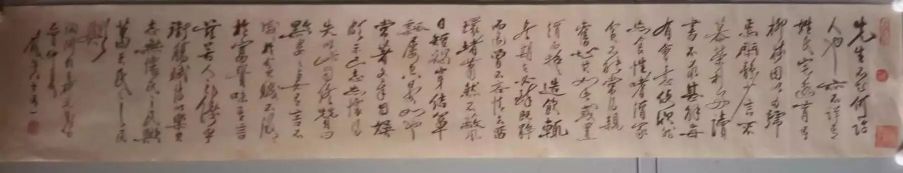 先生不知何許
人也亦不詳其
姓氏宅邊有五
柳樹因以為號
焉閑靜少言不
慕榮利好讀
書不求甚解每
有會意便欣然
忘食性嗜酒家
貧不能常得親
舊知其如此或置
酒而招之造飲輒
盡期在必醉既醉
而退曾不吝情去留
環堵蕭然不蔽風
日短褐穿結簞
瓢屢空晏如也
常著文章自娛
頗示己志忘懷得
失以此自終贊曰
黔婁之妻有言不
戚戚於貧賤不汲汲
於富貴味其言
茲若人之儔乎
銜觴賦詩以樂其
志無懷氏之民歟
葛天氏之民
歟